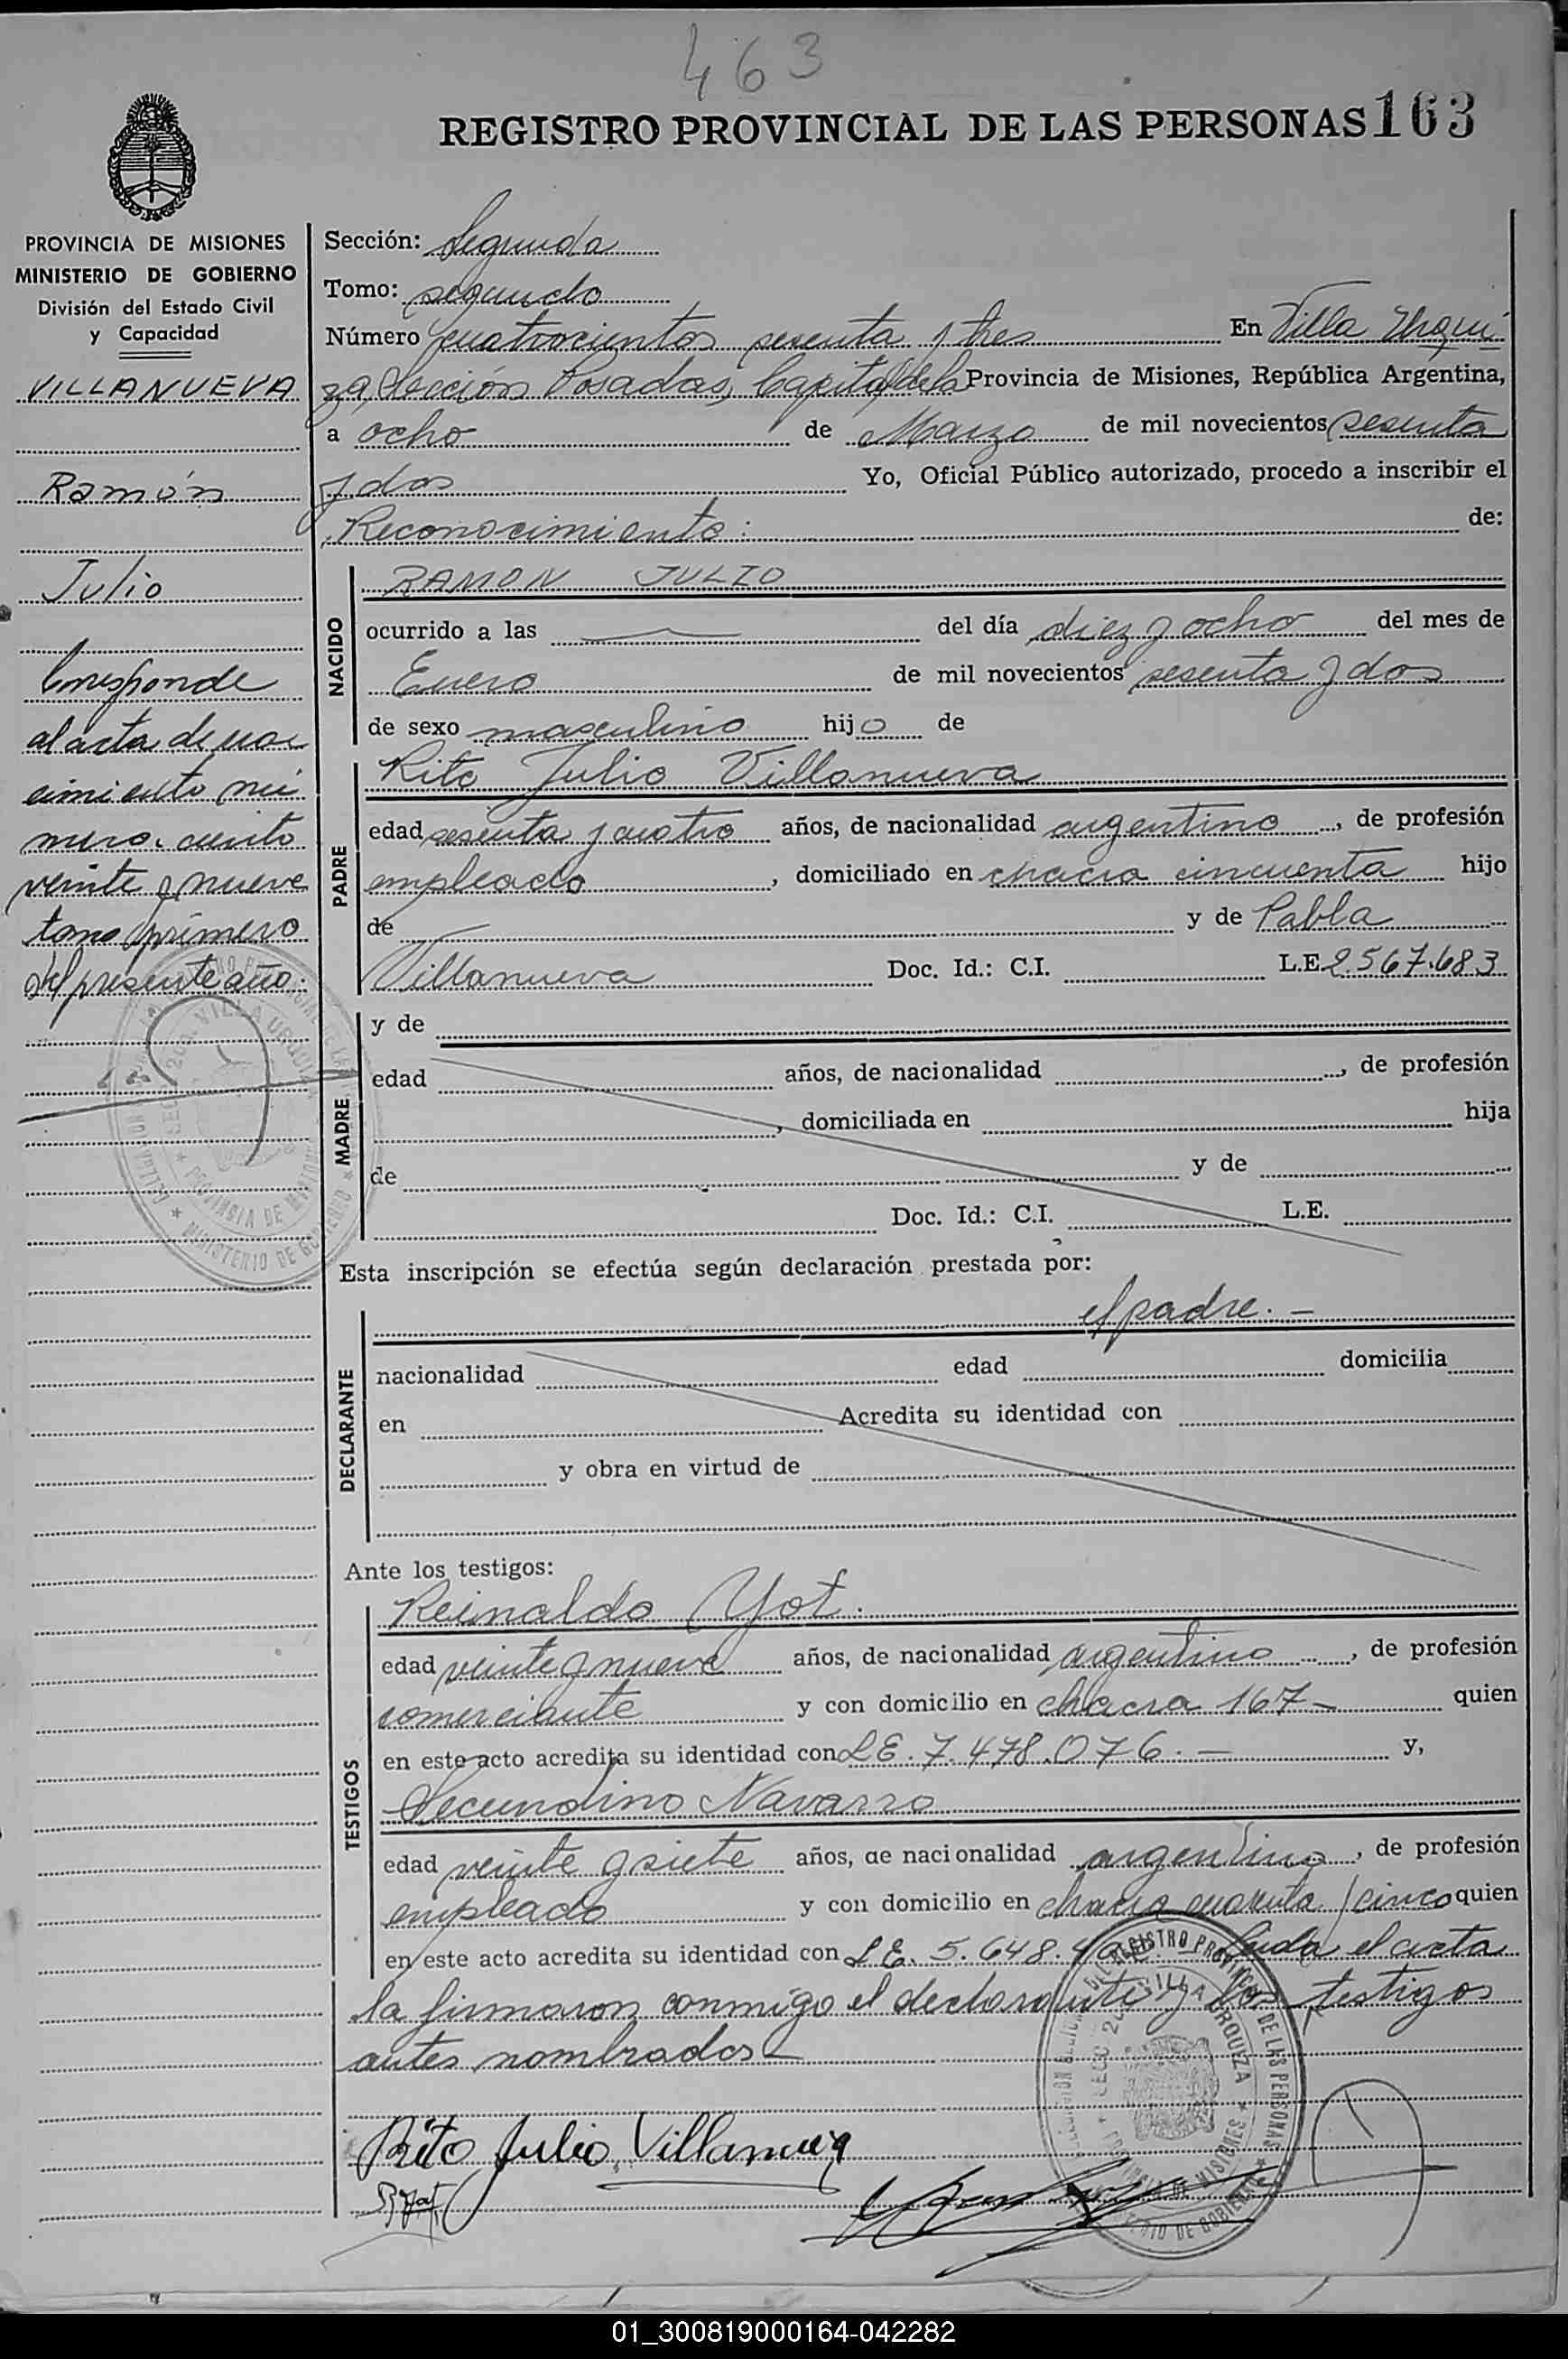 463
REGISTRO PROVINCIAL DE LAS PERSONAS 163
PROVINCIA DE MISIONES
MINISTERIO DE GOBIERNO
División del Estado Civil
y Capacidad
VILLANUEVA
Ramón
Julio
Corresponde
al acta de na
cimiento nú
mero ciento
veinte y nueve
tomo primero
del presente año.
Sección: Segunda
Tomo: segundo
Número cuatrocientos sesenta y tres En Villa Urqui
za, Sección Posadas, Capital de la Provincia de Misiones, República Argentina,
a ocho de Marzo de mil novecientos sesenta
y dos Yo, Oficial Público autorizado, procedo a inscribir el
Reconocimiento: de:
NACIDO
RAMON JULIO
ocurrido a las — del día diez y ocho del mes de
Enero de mil novecientos sesenta y dos
de sexo masculino hijo de
PADRE
Rito Julio Villanueva
edad sesenta y cuatro años, de nacionalidad argentino, de profesión
empleado, domiciliado en chacra cincuenta hijo
de y de Pabla
Villanueva Doc. Id.: C.I. L.E. 2.567.683
MADRE
y de
edad años, de nacionalidad , de profesión
, domiciliada en hija
de y de
Doc. Id.: C.I. L.E.
Esta inscripción se efectúa según declaración prestada por:
el padre. —
DECLARANTE
nacionalidad edad domicilia
en Acredita su identidad con
y obra en virtud de
Ante los testigos:
TESTIGOS
Reinaldo Yot.
edad veinte y nueve años, de nacionalidad argentino, de profesión
comerciante y con domicilio en chacra 167 — quien
en este acto acredita su identidad con L.E. 7.478.076. — y,
Secundino Navarro
edad veinte y siete años, de nacionalidad argentino, de profesión
empleado y con domicilio en chacra cuarenta y cinco quien
en este acto acredita su identidad con L.E. 5.648. Leida el acta
la firmaron conmigo el declarante y los testigos
antes nombrados —
Rito Julio Villanueva
R Yot
01_300819000164-042282